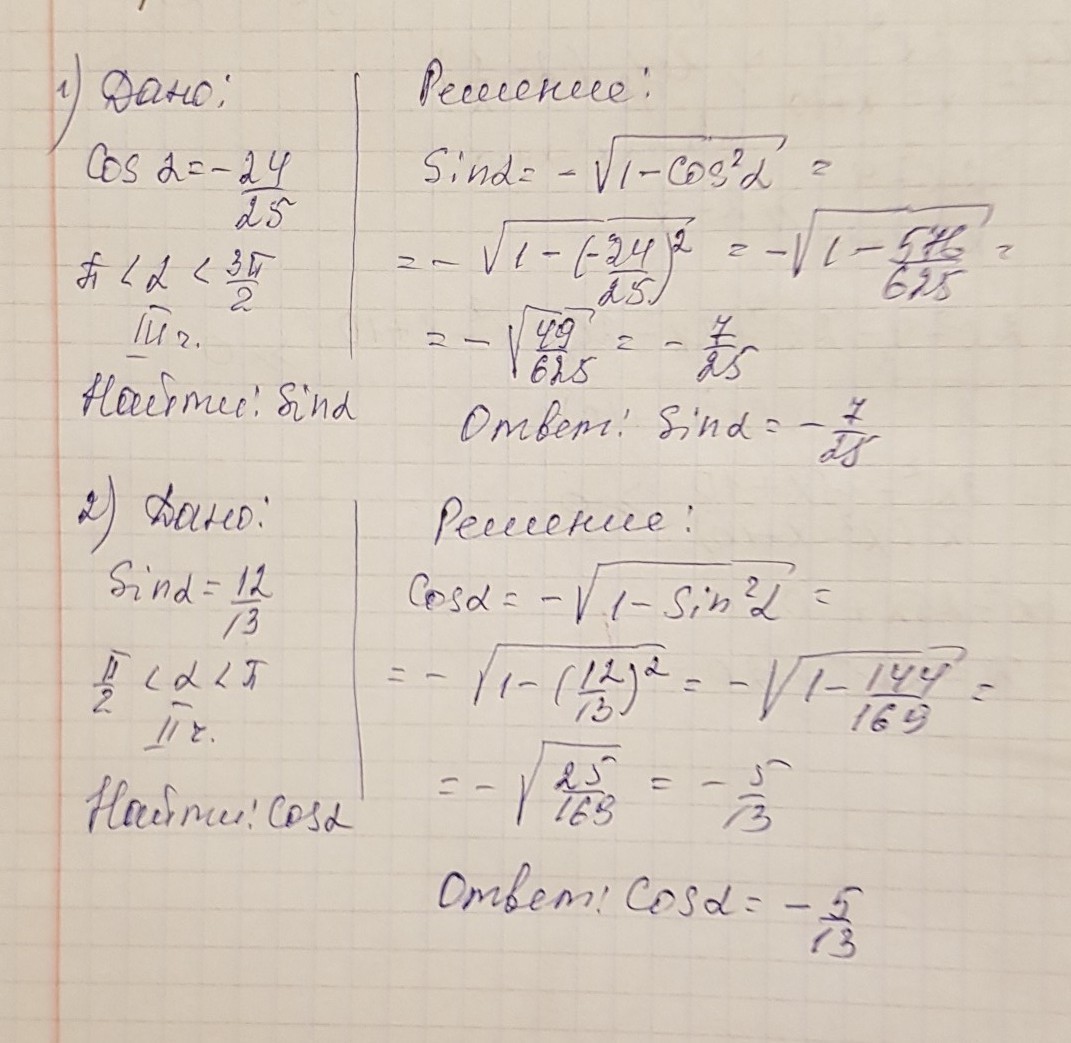 1) Дано:
Cos α = -24/25
π < α < 3π/2
III ч.
Найти: Sinα
Решение:
Sinα = -√(1-Cos²α) =
= -√(1-(-24/25)²) = -√(1-576/625) =
= -√(49/625) = -7/25
Ответ: Sinα = -7/25
2) Дано:
Sinα = 12/13
π/2 < α < π
II ч.
Найти: Cosα
Решение:
Cosα = -√(1-Sin²α) =
= -√(1-(12/13)²) = -√(1-144/169) =
= -√(25/169) = -5/13
Ответ: Cosα = -5/13